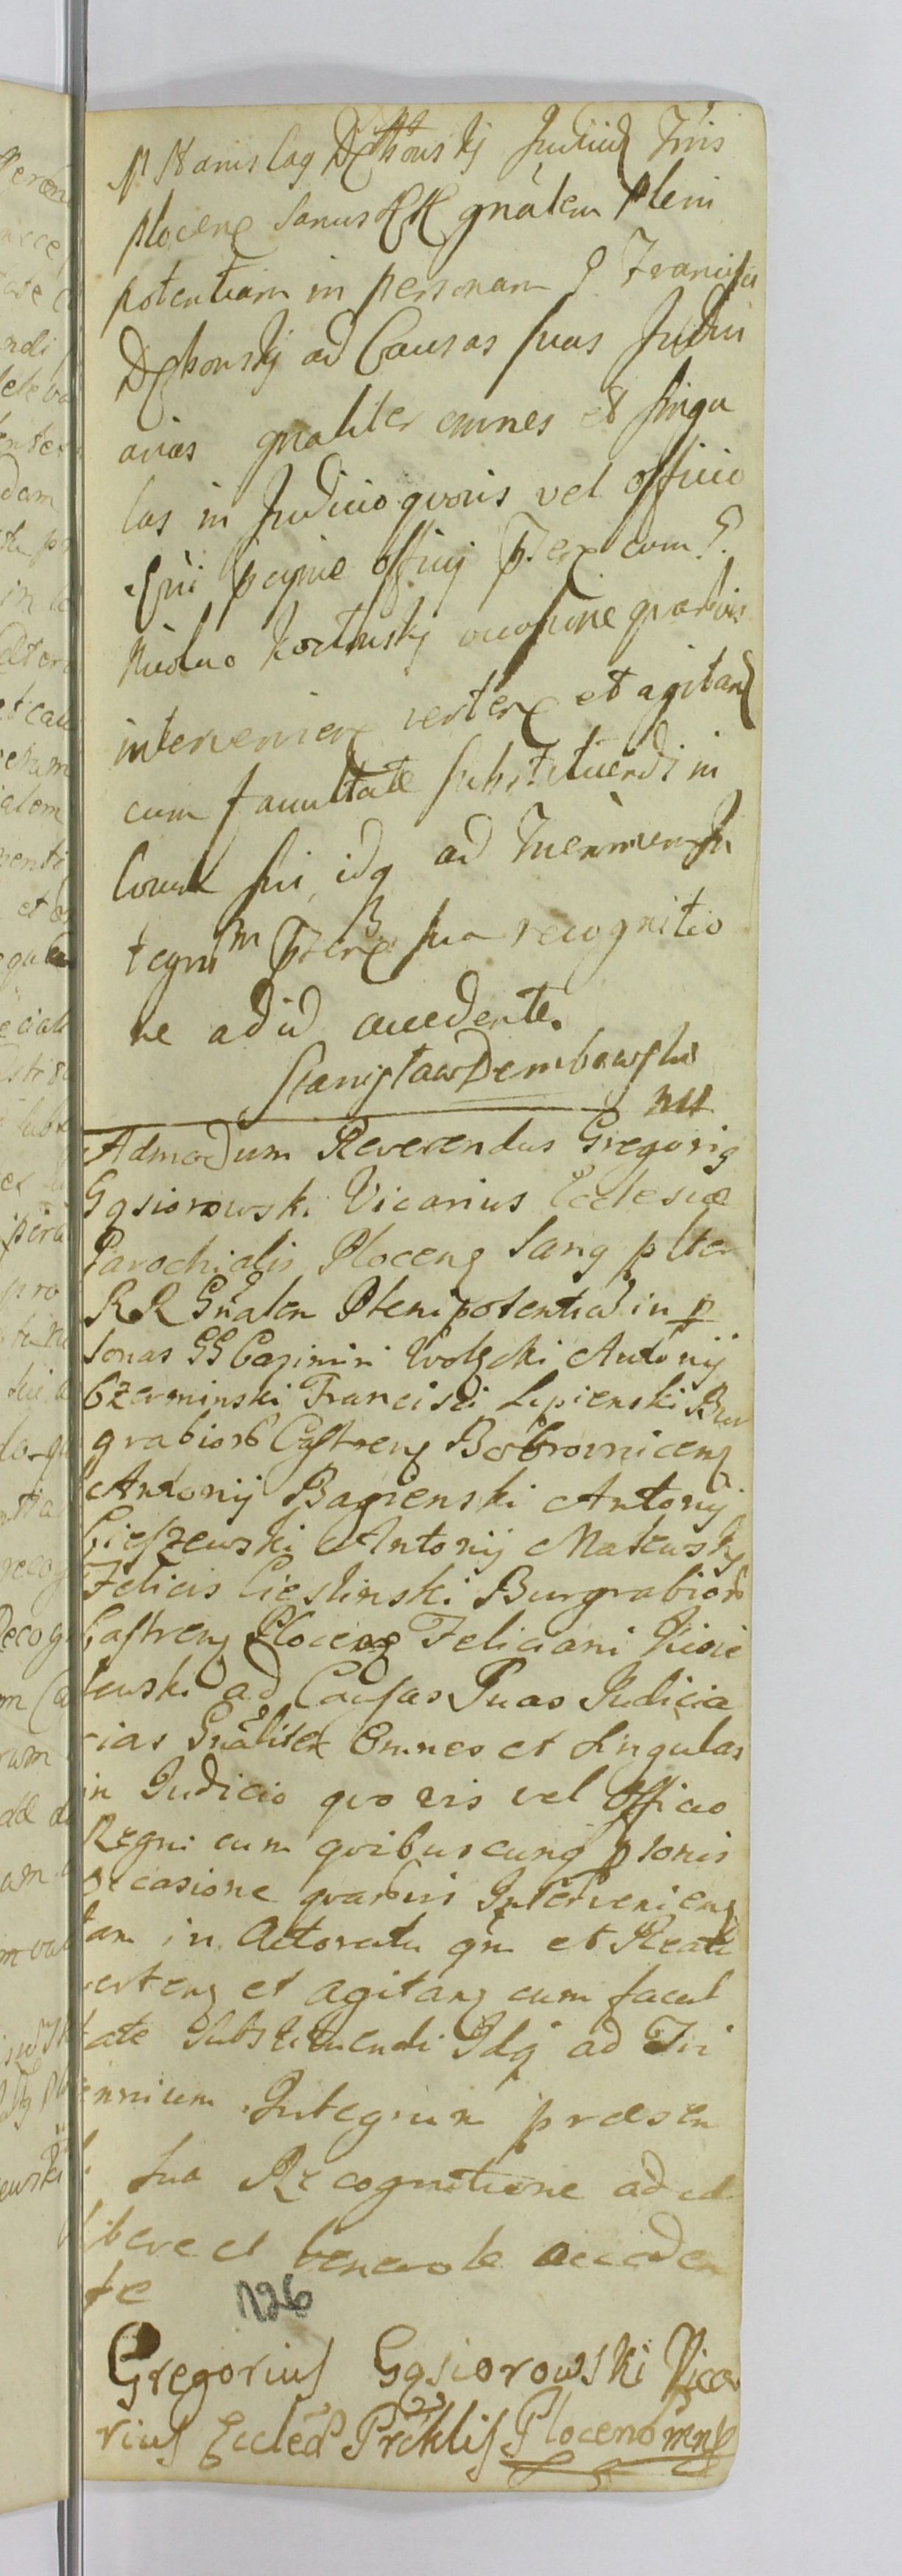 M Stanislaus Dembowskj Judicij Tris
plocen sanus RR gnalem pleni
potentiam in personam G Francisci
Dembowskj ad Causas suas Judici
arias gnaliter omnes et singu
las in Judicio quovis vel officio
officij cum G.
occasione quavis
intervenien verten et agitand
cum facultate substituendi in
locum sui idq ad Triennium In
tegrum sua recognitio
ne ad id accedente.
Stanisław Dembowski
mp
Admodum Reverendus Gregorig
Gąsiorowski Vicarius Ecclesiæ
Parochialis Ploceng Sang p lter
RR Gnalem Plenipotentiã in p
sonas GG Cazimiri Wolski Antonij
Czerminski Francisci Lipienski Bur
grabior Castreng Bobrowniceng
Antonij Bagienski Antonij
Cieszewski Antonij Makowsky
Felicis Cieslinski Burgrabior
Castreng Ploceng Feliciani Kisie
lewski ad Causas Suas Judicia
rias Gnaliter Omnes et Singulas
in Judicio quo vis vel Officio
Regni cum quibuscunq psonis
occasione quavis Intervenieng
tam in Actoratu qm et Reatu
verteng et agitang cum facul
tate Substituendi Idq ad Tri
ennium Integrum præsen
ti Sua Recognitione ad id
libere et benevole acceden
te
126
Gregorius Gąsiorowski Vica
rius Eccleæ Prchlis Plocens mpp